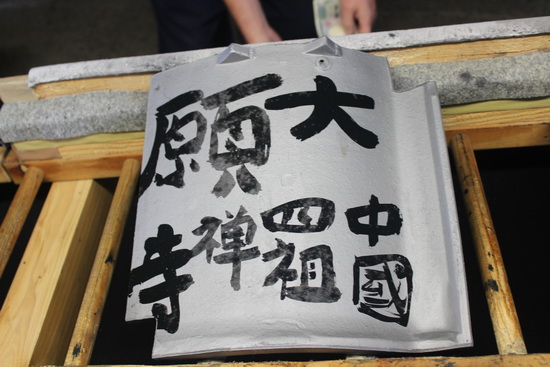 大願
中國四祖禅寺